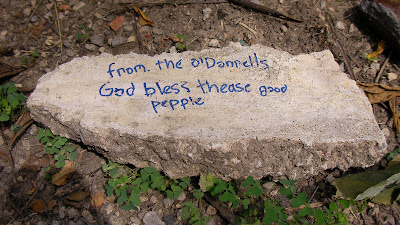 from. the o'Donnells
God bless thease good
pepple